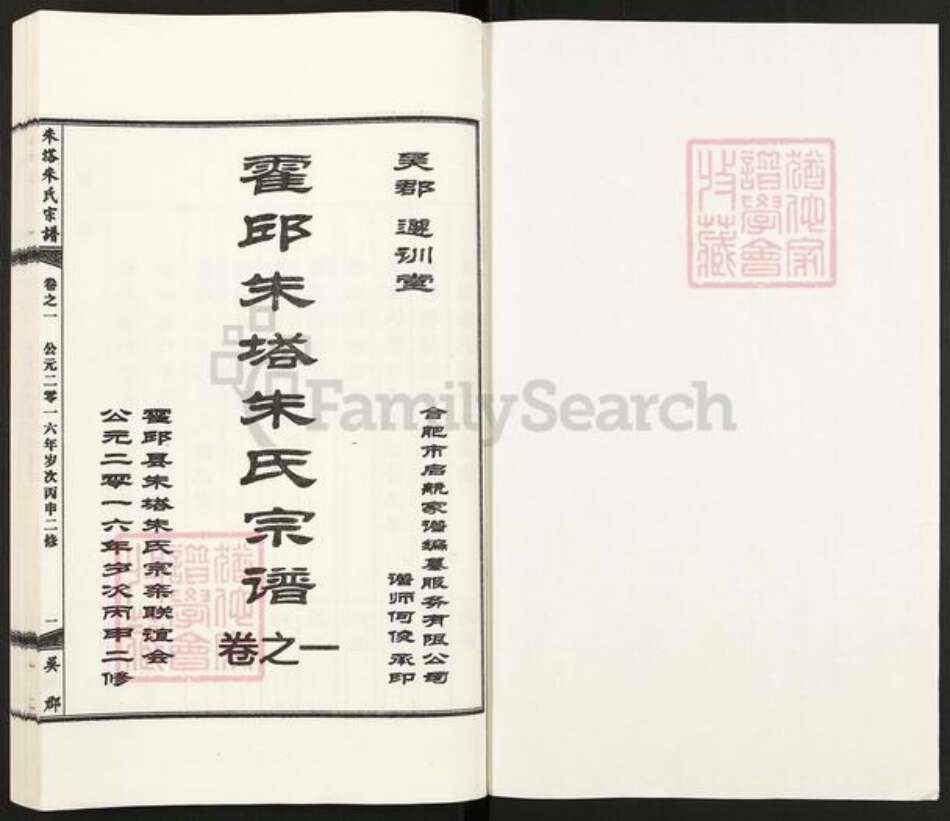 吴郡 遵训堂
合肥市启航家谱编纂服务有限公司
谱师何俊承印
霍邱朱塔朱氏宗谱
卷之一
霍邱县朱塔朱氏宗亲联谊会
公元二零一六年岁次丙申二修
朱塔朱氏宗谱
卷之一 公元二零一六年岁次丙申二修
一
吴郡
FamilySearch
猶他家
譜學會
收藏
猶他家
譜學會
收藏